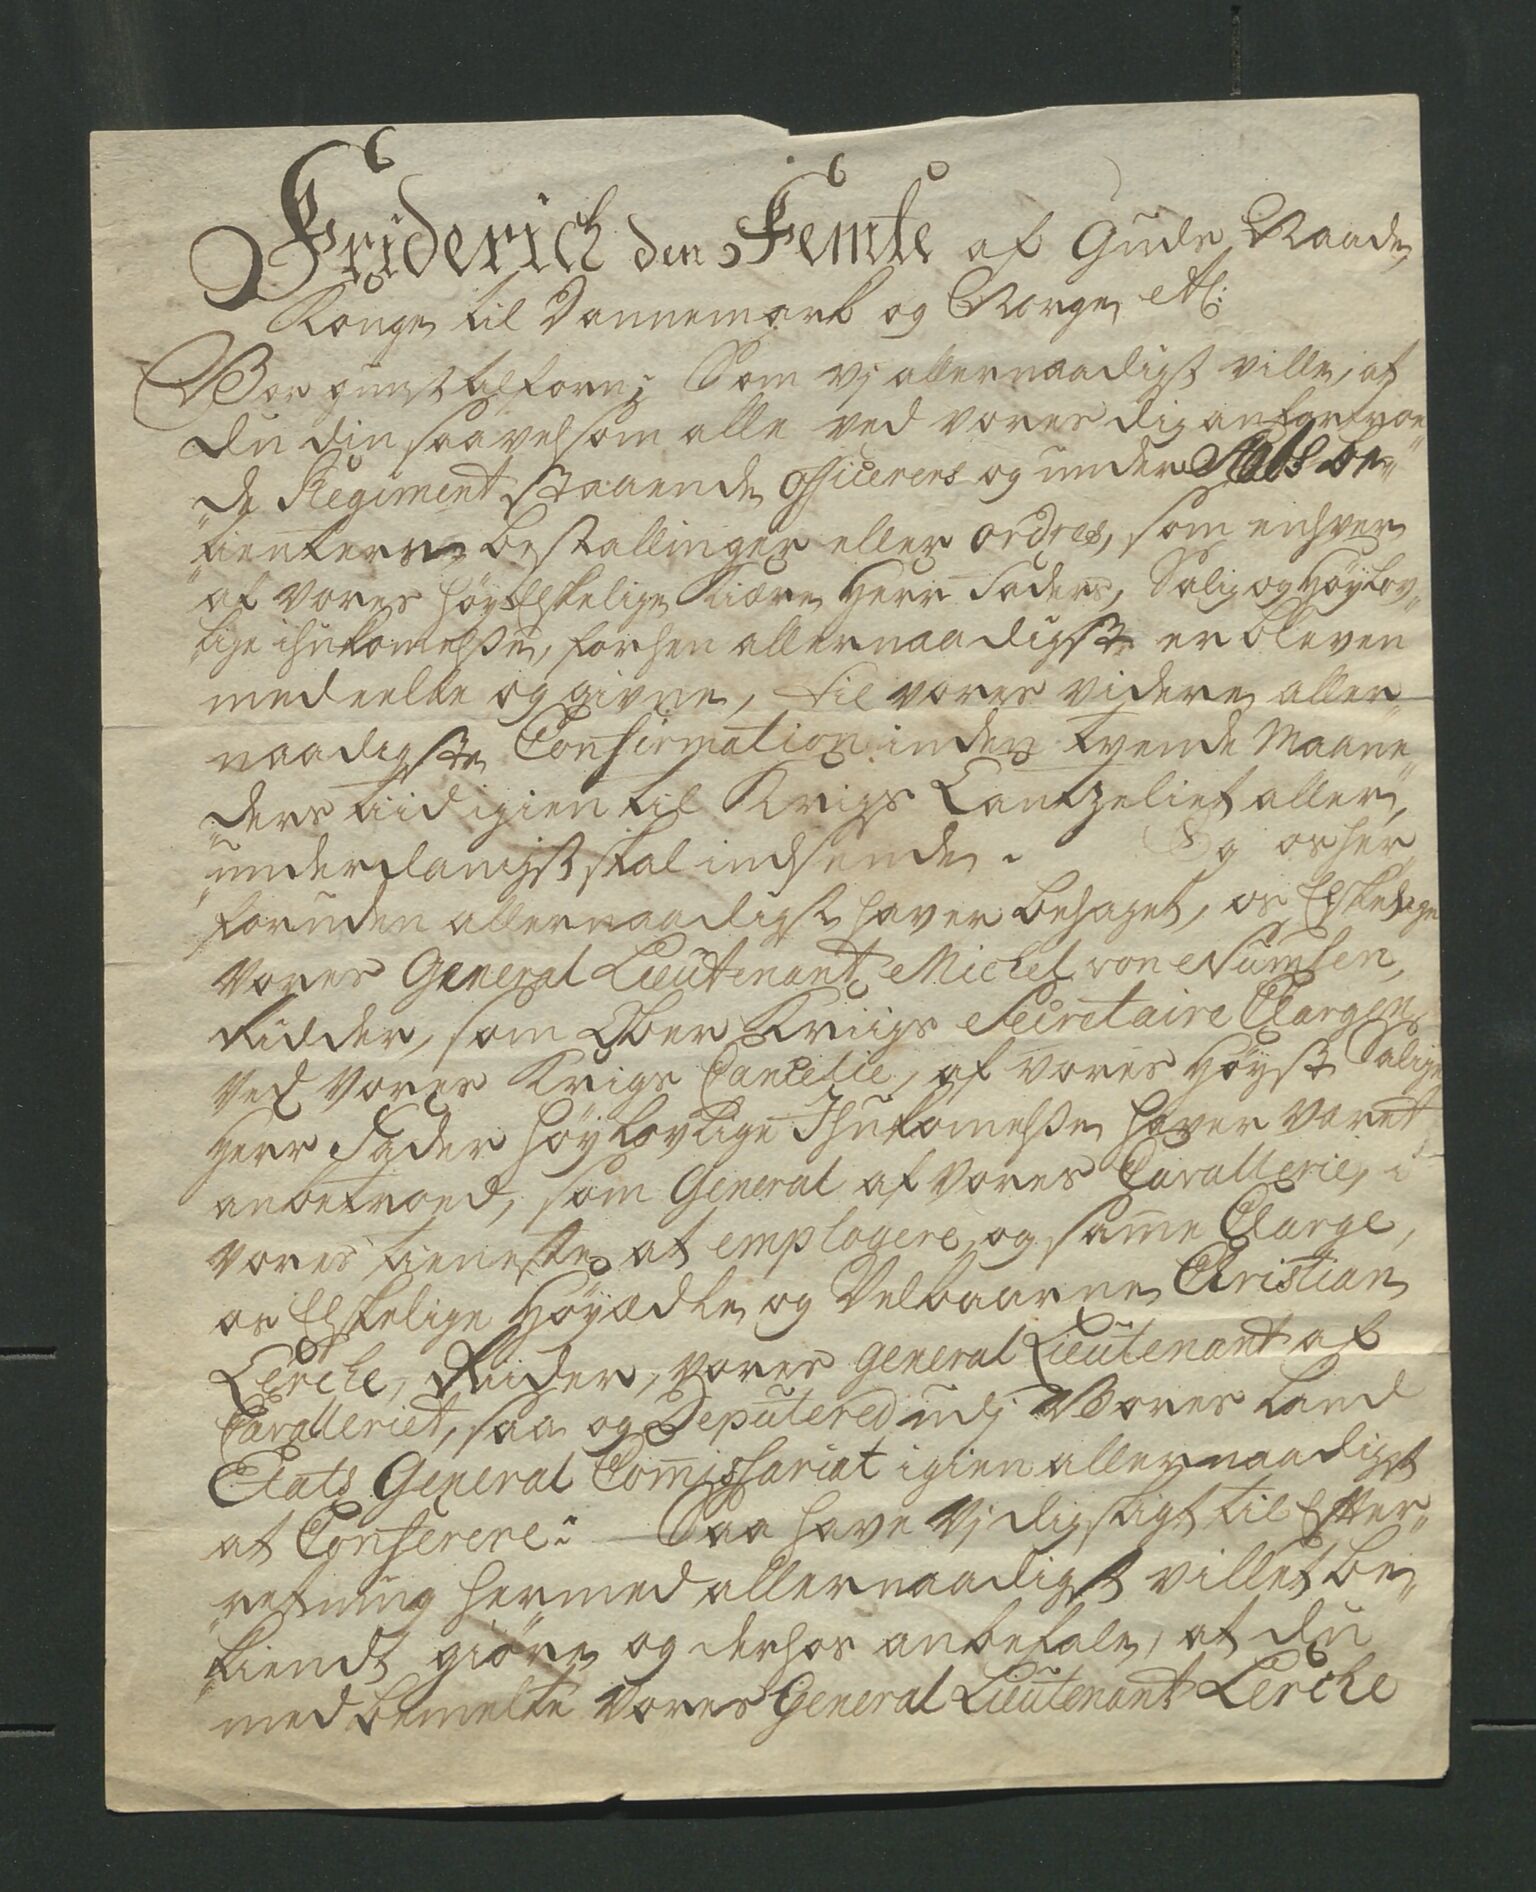 Friderich den Femte af Guds Naade,
Konge til Dannemark og Norge etc:
Vor gunst tilforn; Som vj allernaadigst ville, at
du din saavelsom alle ved vores dig anfortroe„
„de Regiment staaende Officerers og under Stabs be„
„tienters bestallinger eller ordres, som enhver
af vores høyElskelige kiære Herr Faders, Salig og Høylov„
„lige ihukommelse, forhen allernaadigst er bleven
meddeelte og givne, til vores videre aller„
naadigste Confirmation inden tvende Maane„
„ders tiid igien til Krigs Cantzeliet aller„
„underdanigst skal indsende. Og os her„
„foruden allernaadigst haver behaget, os Elskelige
vores General Lieutenant Michel von Numsen,
Ridder, som Ober Kriigs Secretaire Chargen
ved vores Krigs Cancelie, af vores Høyst Salige
Herr Fader Høylovlige Ihukommelse haver været
anbetroed, som General af vores Cavallerie, i
vores tieneste at employere, og samme Charge,
os Elskelige Høyædle og Velbaarne Christian
Lerche, Ridder, vores General Lieutenant af
Cavalleriet, saa og Deputered udj Vores Land
Etats General Commissariat igien allernaadigst
at Conferere: Saa have Vj dig sligt til Efter„
„retning hermed allernaadigst villet be„
„kiendt giøre og derhos anbefale, at du
med bemelte Vores General Lieutenant Lerche